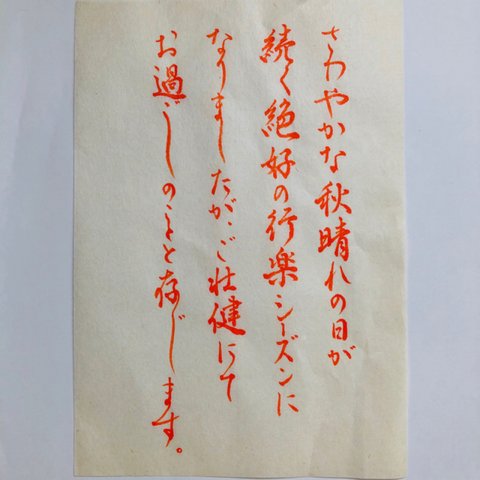 さわやかな秋晴れの日が
続く絶好の行楽シーズンに
なりましたが、ご壮健にて
お過ごしのことと存じます。